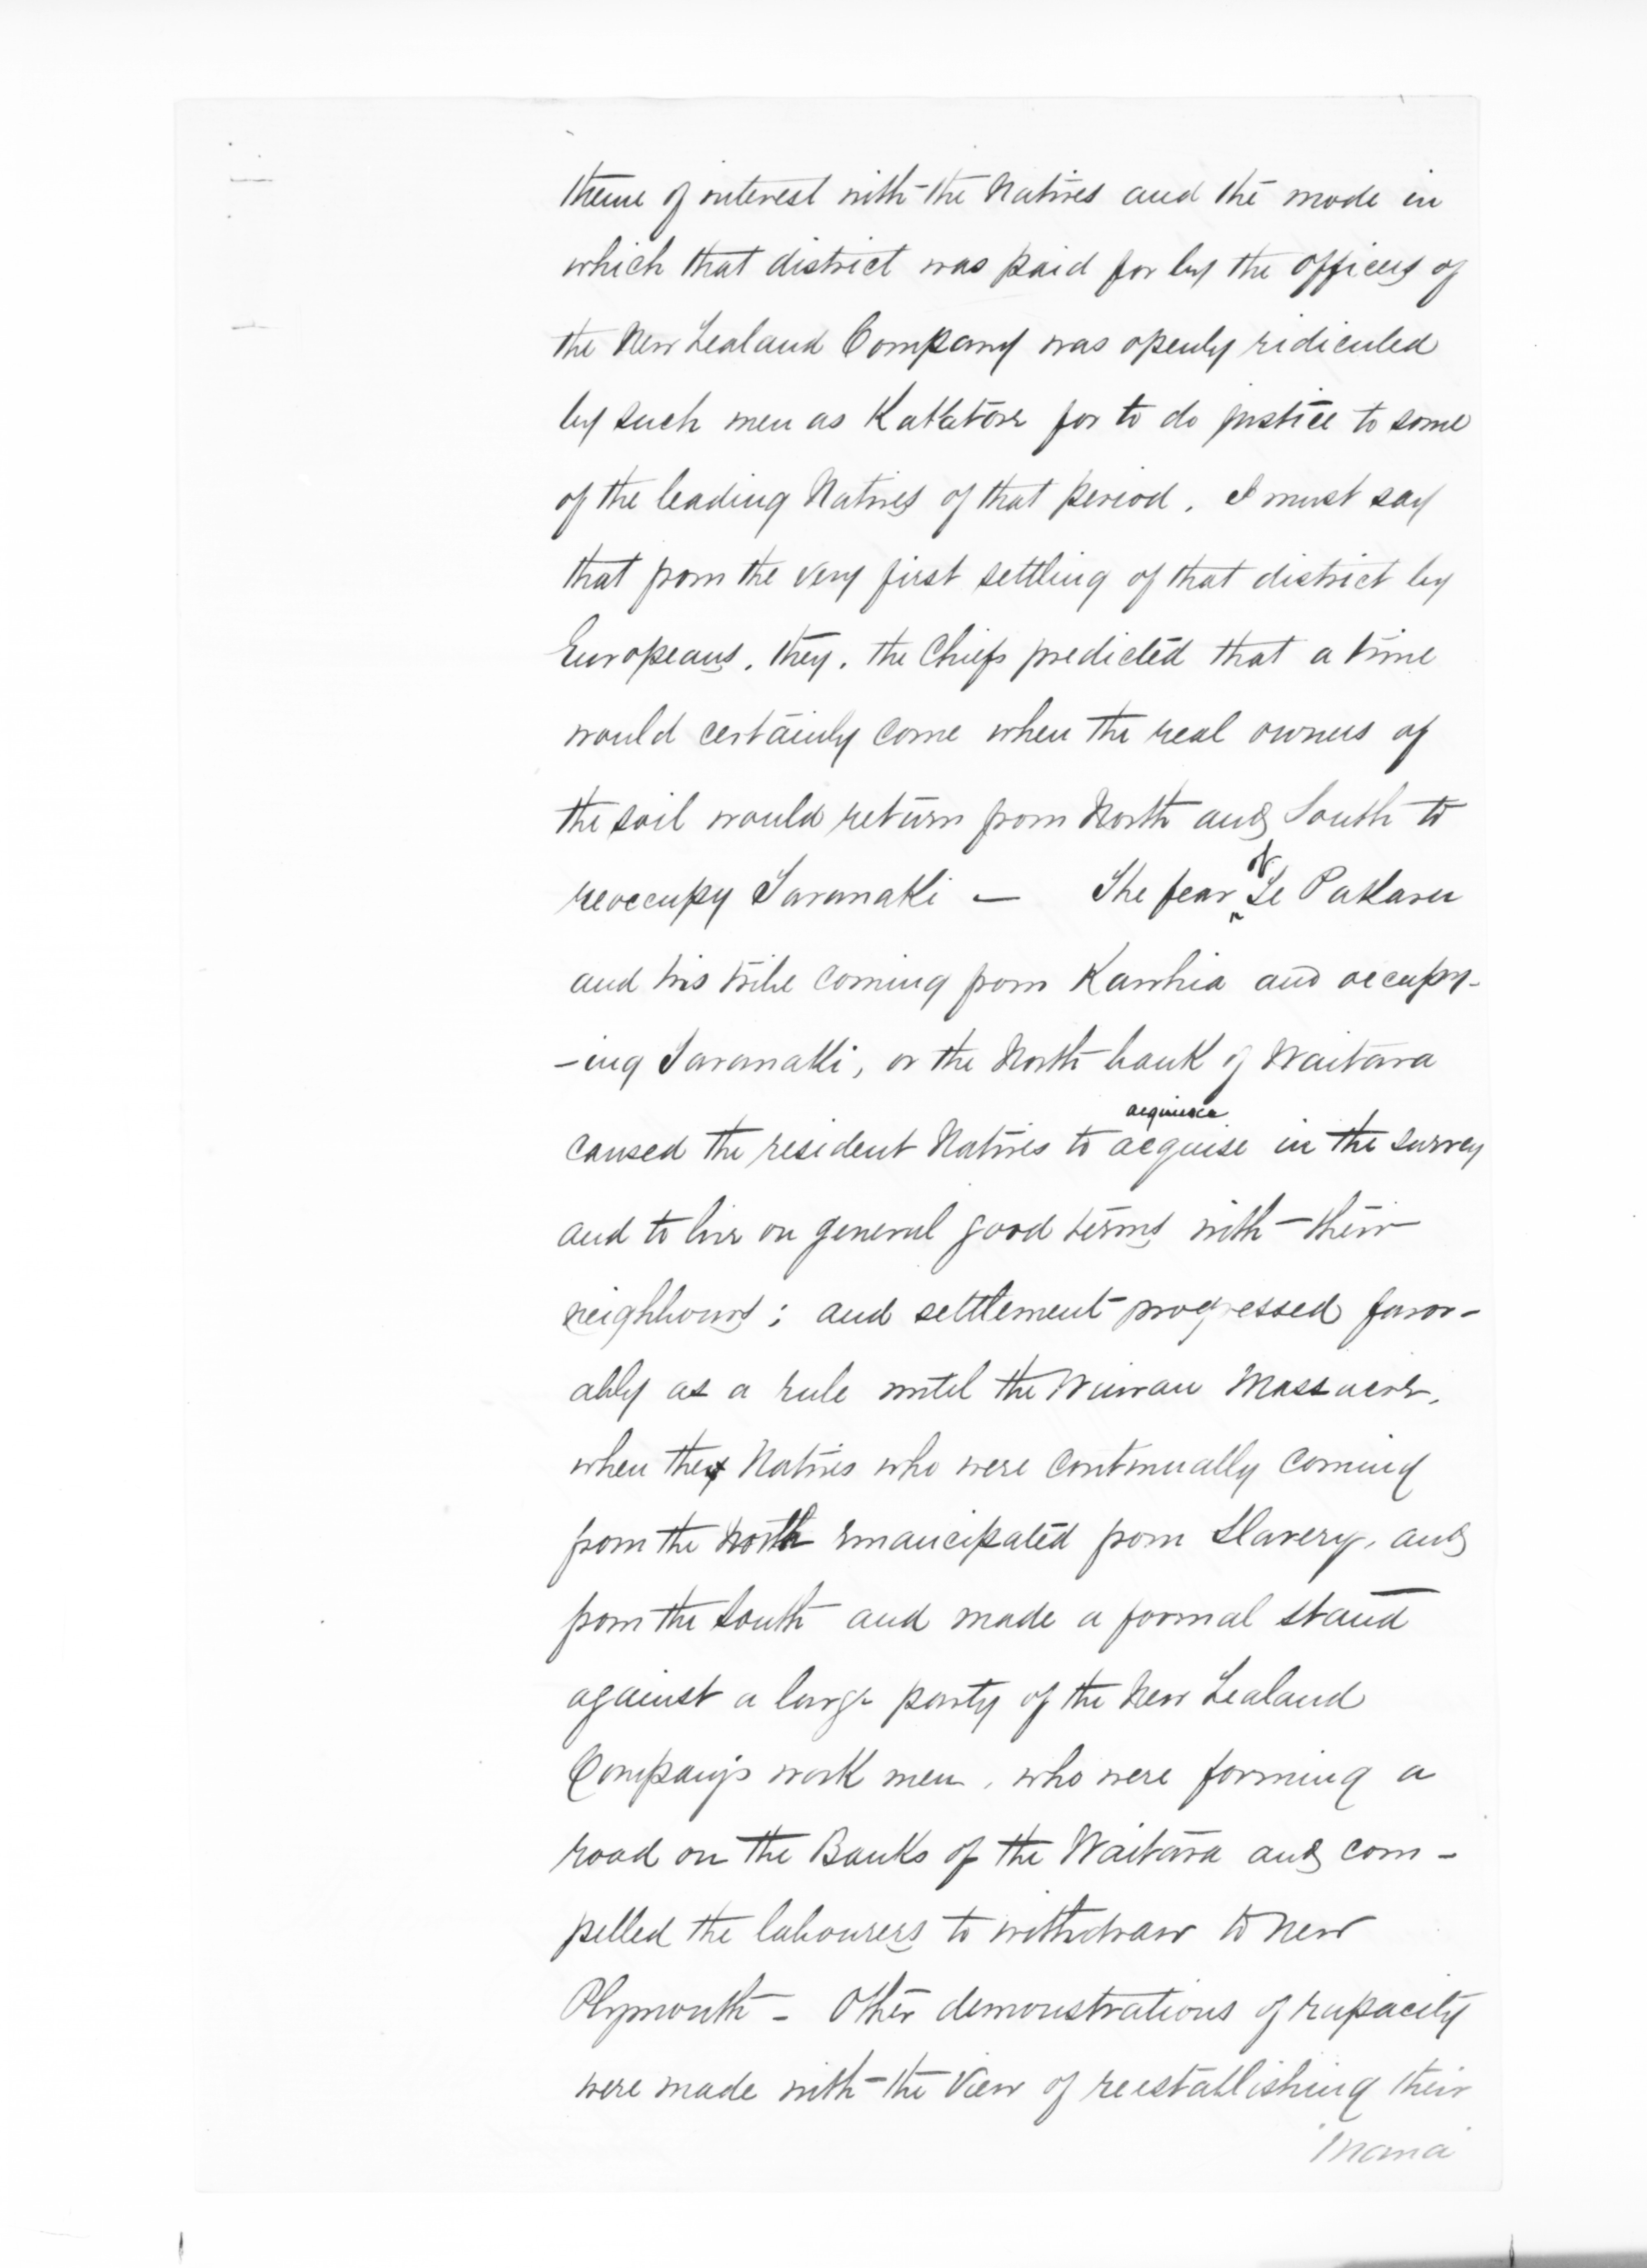 theme of interest with the Natives and the mode in
which that district was paid for by the officers of
the New Zealand Company was openly ridiculed
by such men as Katatore for to do justice to some
of the leading Natives of that period. I must say
that from the very first settling of that district by
Europeans. they. the Chiefs predicted that a time
would certainly come when the real owners of
the soil would return from North and South to
reoccupy Taranaki — The fear of Te Pakaru
and his tribe coming from Kawhia and occupy-
-ing Taranaki, or the North bank of Waitara
acquiesce
caused the resident Natives to acquise in the survey
and to live on general good terms with their
neighbours; and settlement progressed favor-
ably as a rule until the Wairau Massacre,
when the Natives who were continually coming
from the North emancipated from Slavery, and
from the South and made a formal stand
against a large party of the New Zealand
Company's work men, who were forming a
road on the Banks of the Waitara and com-
pelled the labourers to withdraw to New
Plymouth - Other demonstrations of rapacity
were made with the view of reestablishing their
'Mana'